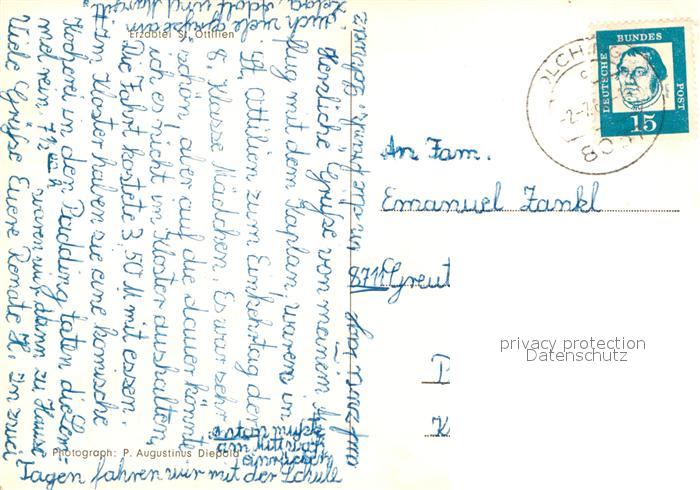 Erzabtei St. Ottilien
Herzliche Grüße von meinem
flug mit dem Kaplan, waren in
St. Ottilien zum Einkehrtag der
8. Klasse Mädchen. Es war sehr
schön, aber auf die dauer könnte
ich es nicht im Kloster aushalten,
Die Fahrt kostete 3,50 M mit essen.
Im Kloster haben sie eine komische
Kocherei in den Pudding taten die Zem-
mel rein 7 1/2 waren wir dann zu Hause
Viele Grüße Eure Renate H. in zwei
Tagen fahren wir mit der Schule
auf
in die
Auch viele grüße an
Adolf und
Photograph: P. Augustinus Diepold
DEUTSCHE BUNDES POST
15
An Fam.
Emanuel Zankl
8711 Greut
privacy protection
Datenschutz